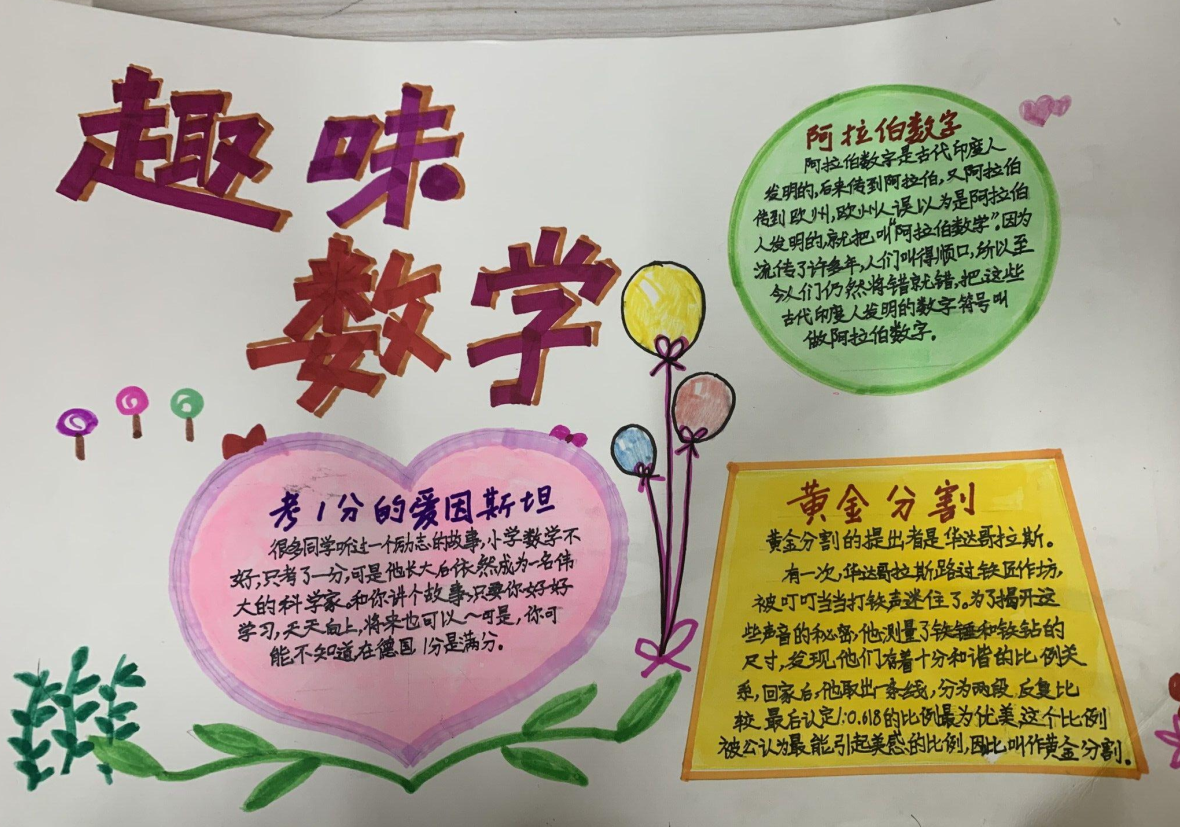 趣味
数学
阿拉伯数字
阿拉伯数字是古代印度人
发明的,后来传到阿拉伯,又阿拉伯
传到欧州,欧州人误以为是阿拉伯
人发明的,就把叫“阿拉伯数学”.因为
流传了许多年,人们叫得顺口,所以至
今人们仍然将错就错,把这些
古代印度人发明的数字符号叫
做阿拉伯数字。
考1分的爱因斯坦
很多同学听过一个励志的故事,小学数学不
好,只考了一分,可是他长大后依然成为一名伟
大的科学家。和你讲个故事,只要你好好
学习,天天向上,将来也可以~可是,你可
能不知道,在德国1分是满分。
黄金分割
黄金分割的提出者是华达哥拉斯。
有一次,华达哥拉斯路过铁匠作坊,
被叮叮当当打铁声迷住了。为了揭开这
些声音的秘密,他测量了铁锤和铁钻的
尺寸,发现他们有着十分和谐的比例关
系,回家后,他取出一条线,分为两段.反复比
较.最后认定1:0.618的比例最为优美,这个比例
被公认为最能引起美感的比例,因比叫作黄金分割。